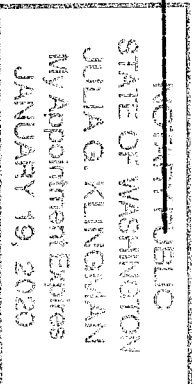 NOTARY PUBLIC
STATE OF WASHINGTON
JULIA G. KLINGMAN
My Appointment Expires
JANUARY 19, 2020